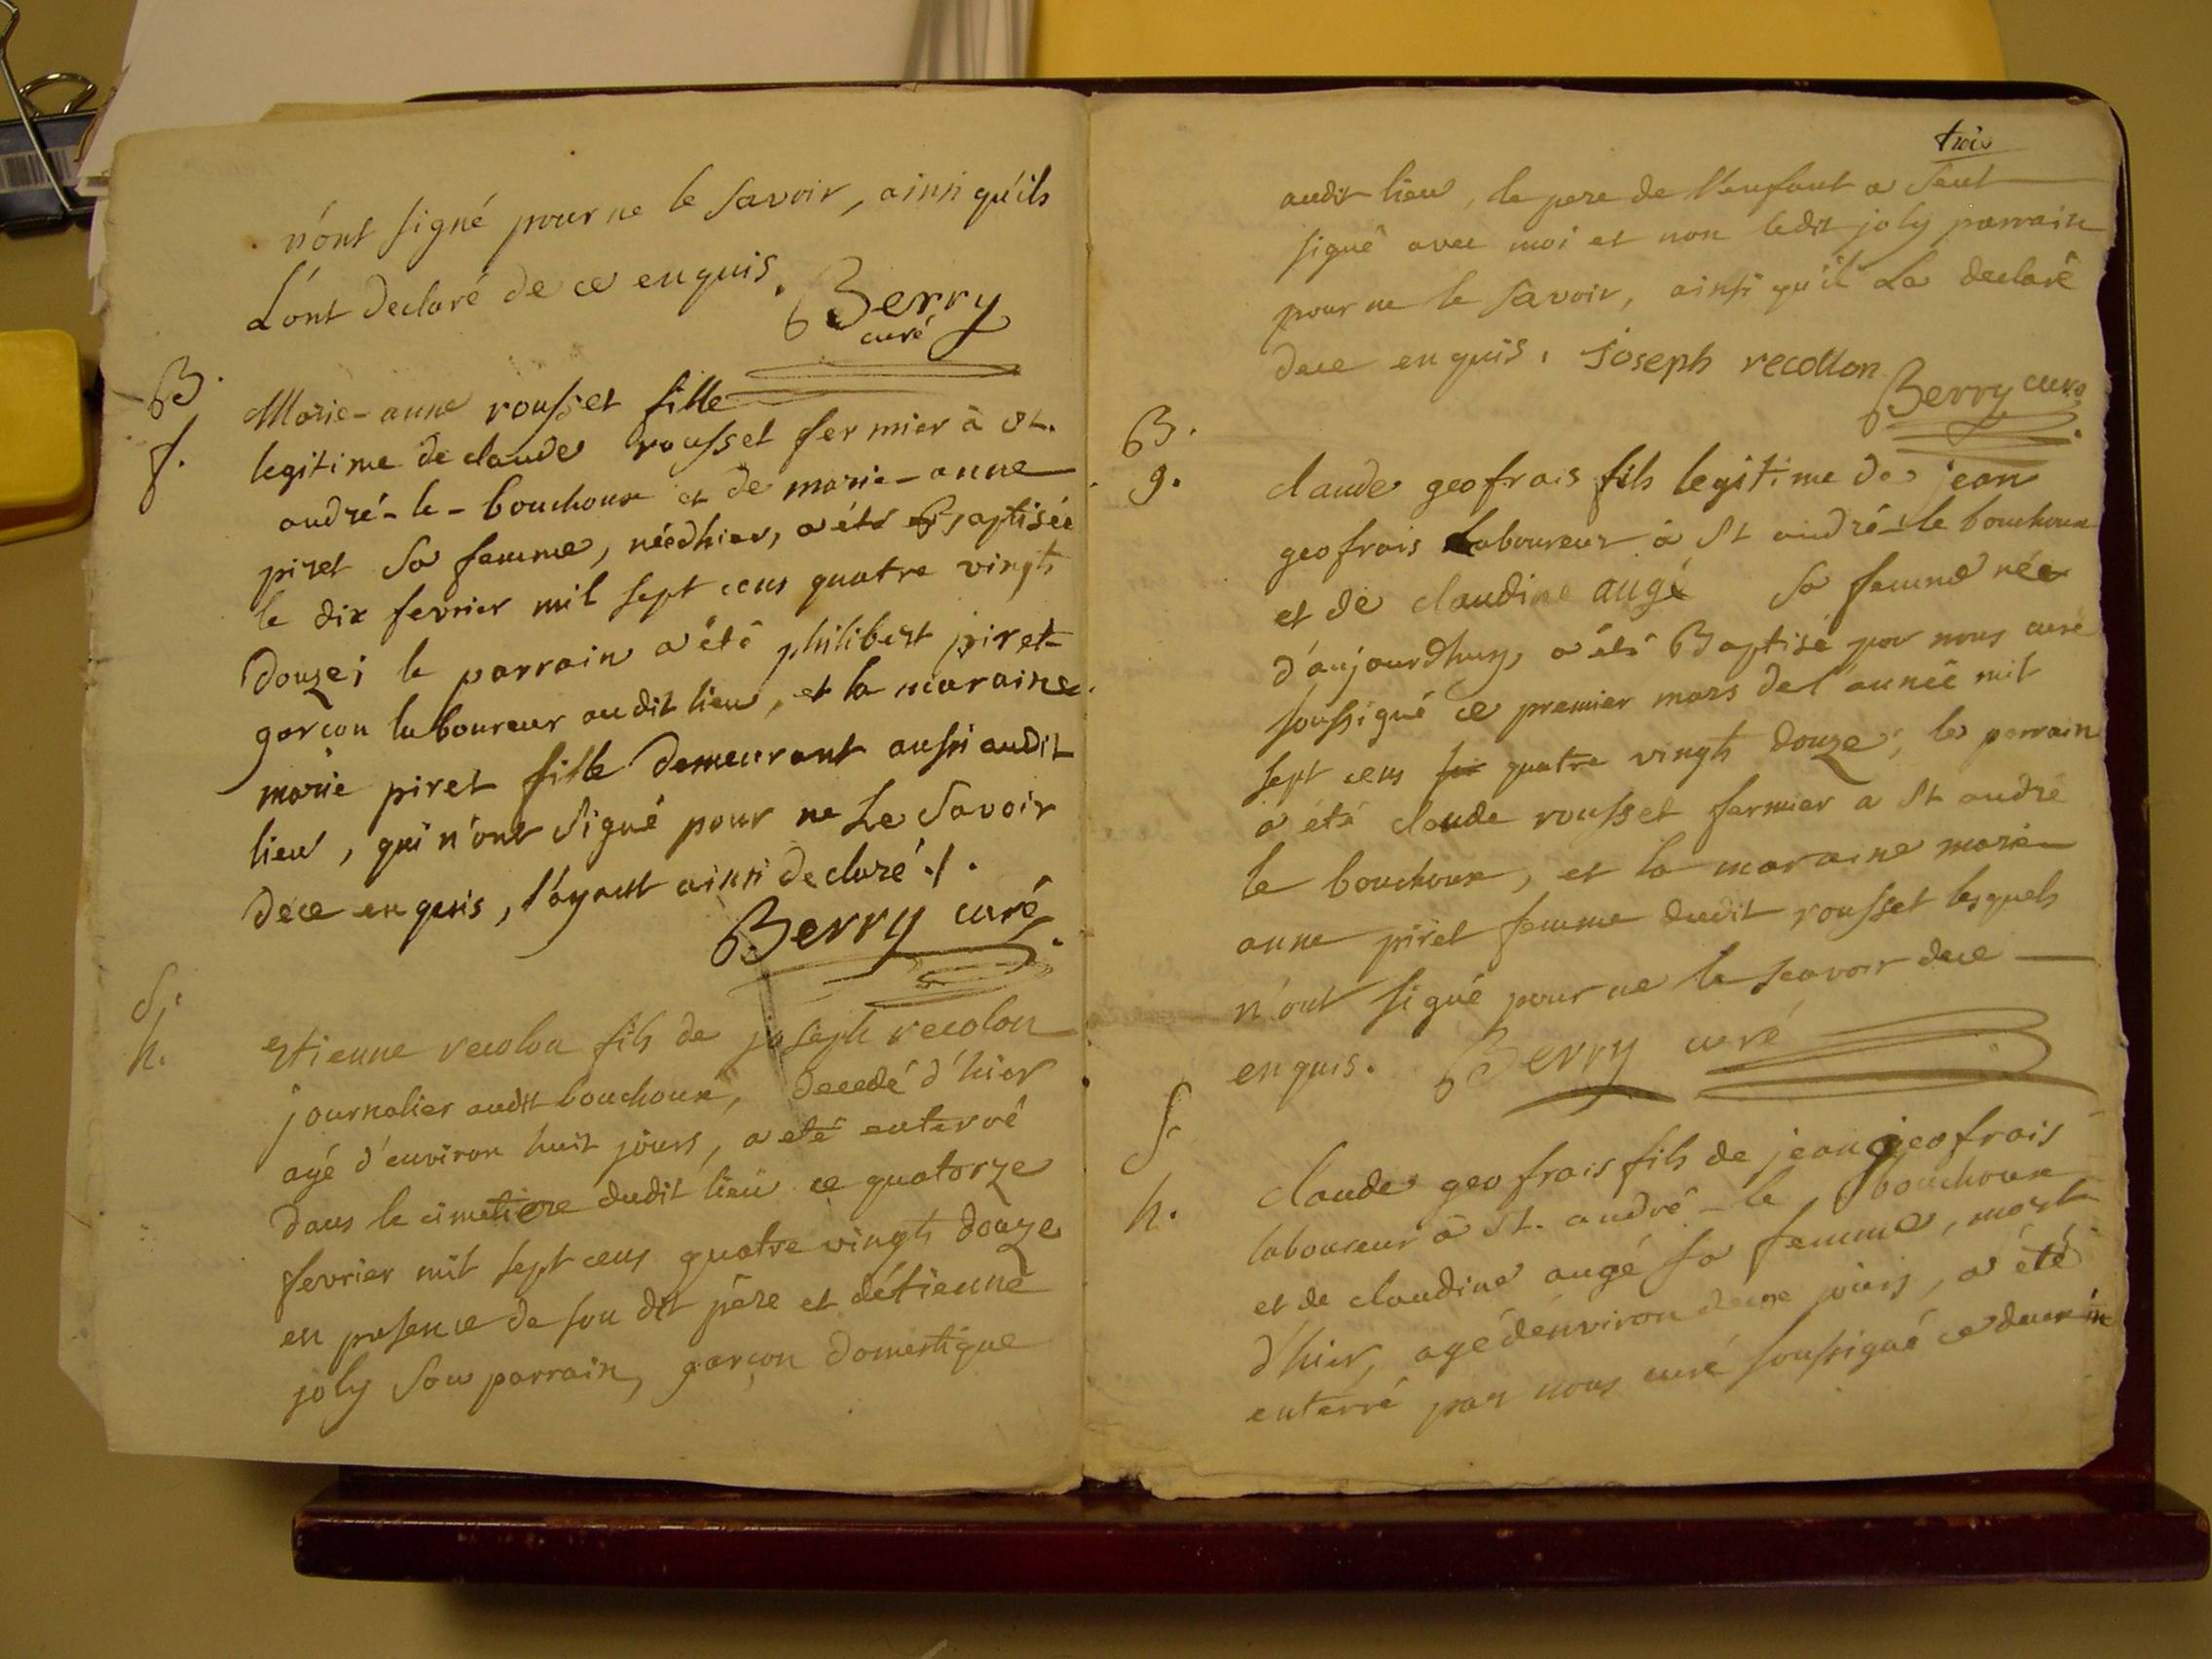 n'ont signé pour ne le savoir, ainsi qu'ils
L'ont declaré de ce enquis.
Berry
curé
B.
f.
Marie-anne rousset fille
legitime de claude rousset fermier à St.
andré-le-bouchoux et de marie-anne
piret sa femme, née d'hier, a été Baptisée
le dix fevrier mil sept cens quatre vingts
Douze; le parrain a été philibert piret
garcon laboureur audit lieu, et la maraine
marie piret fille Demeurant aussi audit
lieu, qui n'ont signé pour ne Le savoir
de ce enquis, l'ayant ainsi declaré ./.
Berry curé
S.
h.
Etienne recolon fils de joseph recolon
journalier audit bouchoux, decedé d'hier
agé d'environ huit jours, a eté enterré
Dans le cimetiere dudit lieu ce quatorze
fevrier mil sept cens quatre vingts douze
en presence de son dit père et détienne
joly son parrain, garçon Domestique
trois
audit lieu, le pere de l'enfant a seul
signé avec moi et non ledit joly parrain
pour ne le savoir, ainsi qu'il La declaré
de ce enquis. joseph recollon
Berry curé
B.
g.
claude geofrais fils legitime de jean
geofrais Laboureur à St andré-le bouchoux
et de claudine augé sa femme née
d'aujourdhuy, a été Baptisé par nous curé
soussigné ce premier mars de l'année mil
sept cens quatre vingts douze; le parrain
a été claude rousset fermier a St andré
le bouchoux, et la maraine marie
anne piret femme dudit rousset lesquels
n'ont signé pour ne le scavoir de ce
enquis. Berry curé
S.
h.
claude geofrais fils de jean geofrais
laboureur à St. andré-le bouchoux
et de claudine augé sa femme, mort
d'hier, agé d'environ jours, a été
enterré par nous curé soussigné ce